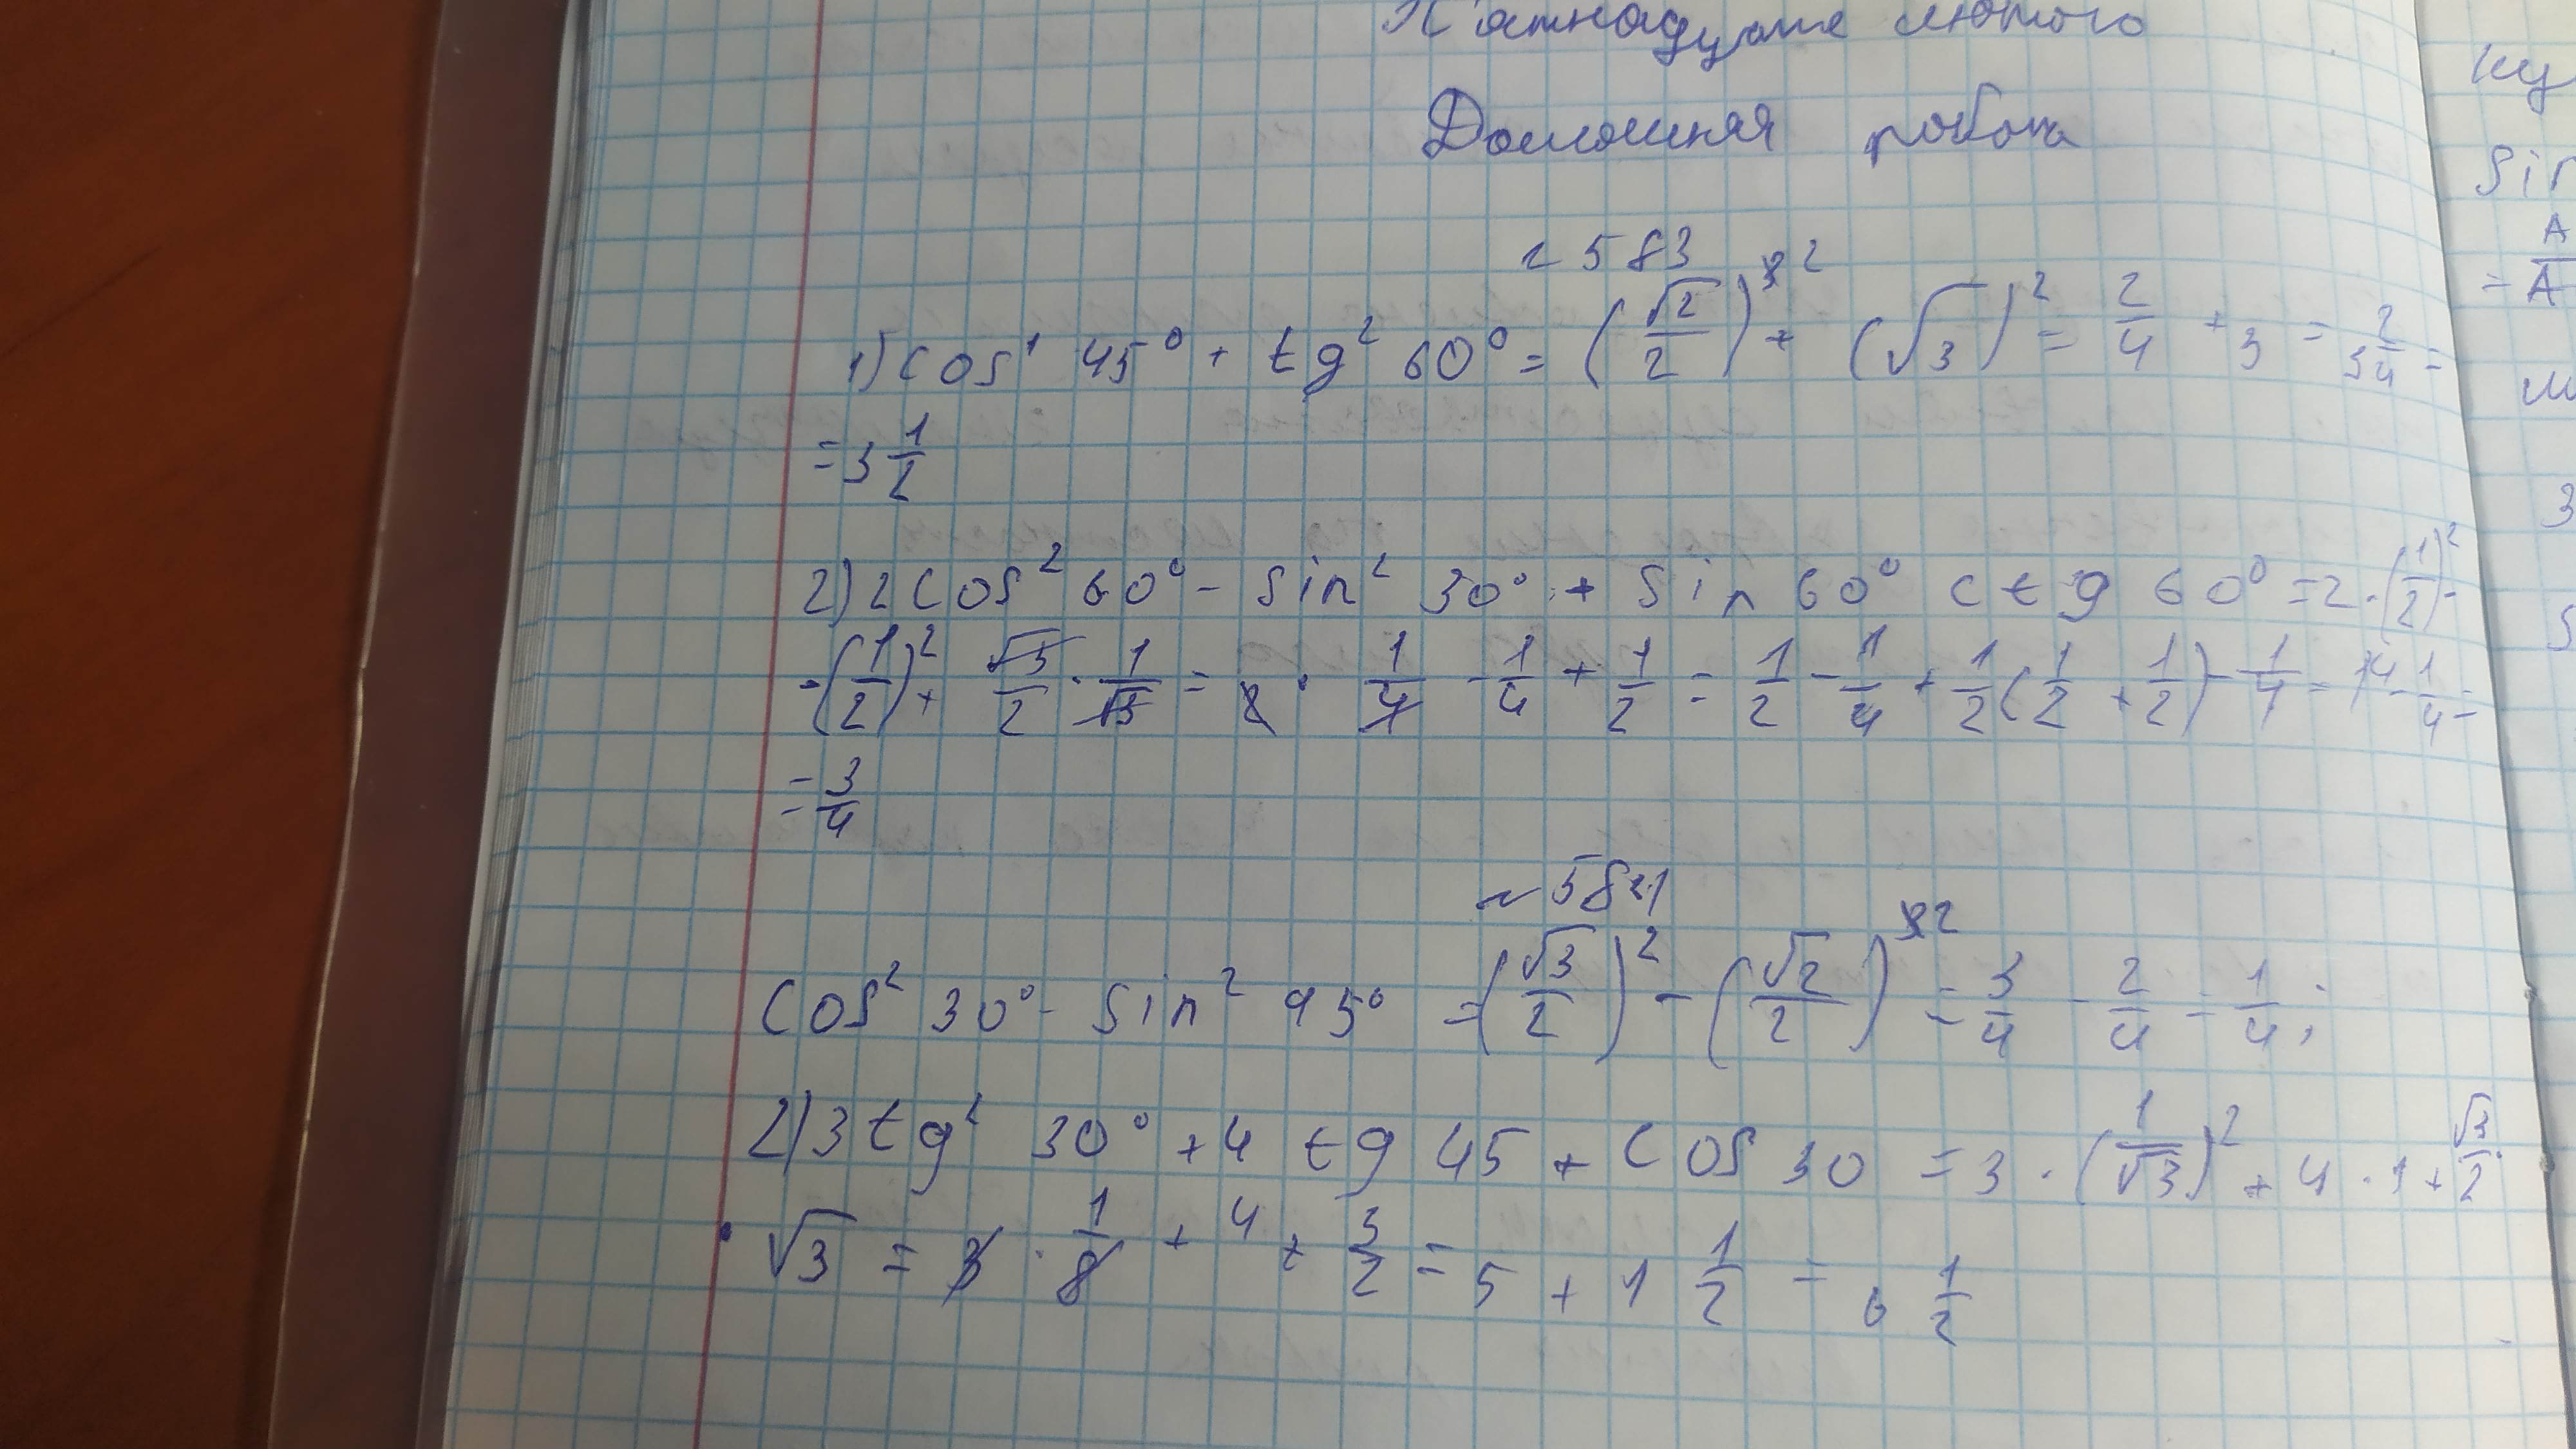 П'ятнадцяте лютого
Домашняя робота
№583
1) cos² 45° + tg² 60° = (√2/2)² + (√3)² = 2/4 + 3 = 3 2/4 =
= 3 1/2
2) 2 cos² 60° - sin² 30° + sin 60° ctg 60° = 2 · (1/2)² -
- (1/2)² + √3/2 · 1/√3 = 2 · 1/4 - 1/4 + 1/2 = 1/2 - 1/4 + 1/2 (1/2 + 1/2) - 1/4 = 1 - 1/4 =
= 3/4
№584
cos² 30° - sin² 45° = (√3/2)² - (√2/2)² = 3/4 - 2/4 = 1/4;
2) 3 tg² 30° + 4 tg 45 + cos 30 = 3 · (1/√3)² + 4 · 1 + √3/2 ·
· √3 = 3 · 1/8 + 4 + 3/2 = 5 + 1 1/2 = 6 1/2
Sin
A
= A
3